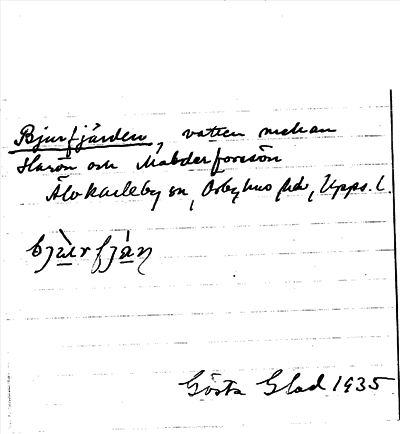 Bjurfjärden, vatten mellan
Harön och Mabderforsön
Älvkarleby sn, Örbyhus hd, Upps. l.
bjùrfján
Gösta Glad 1935